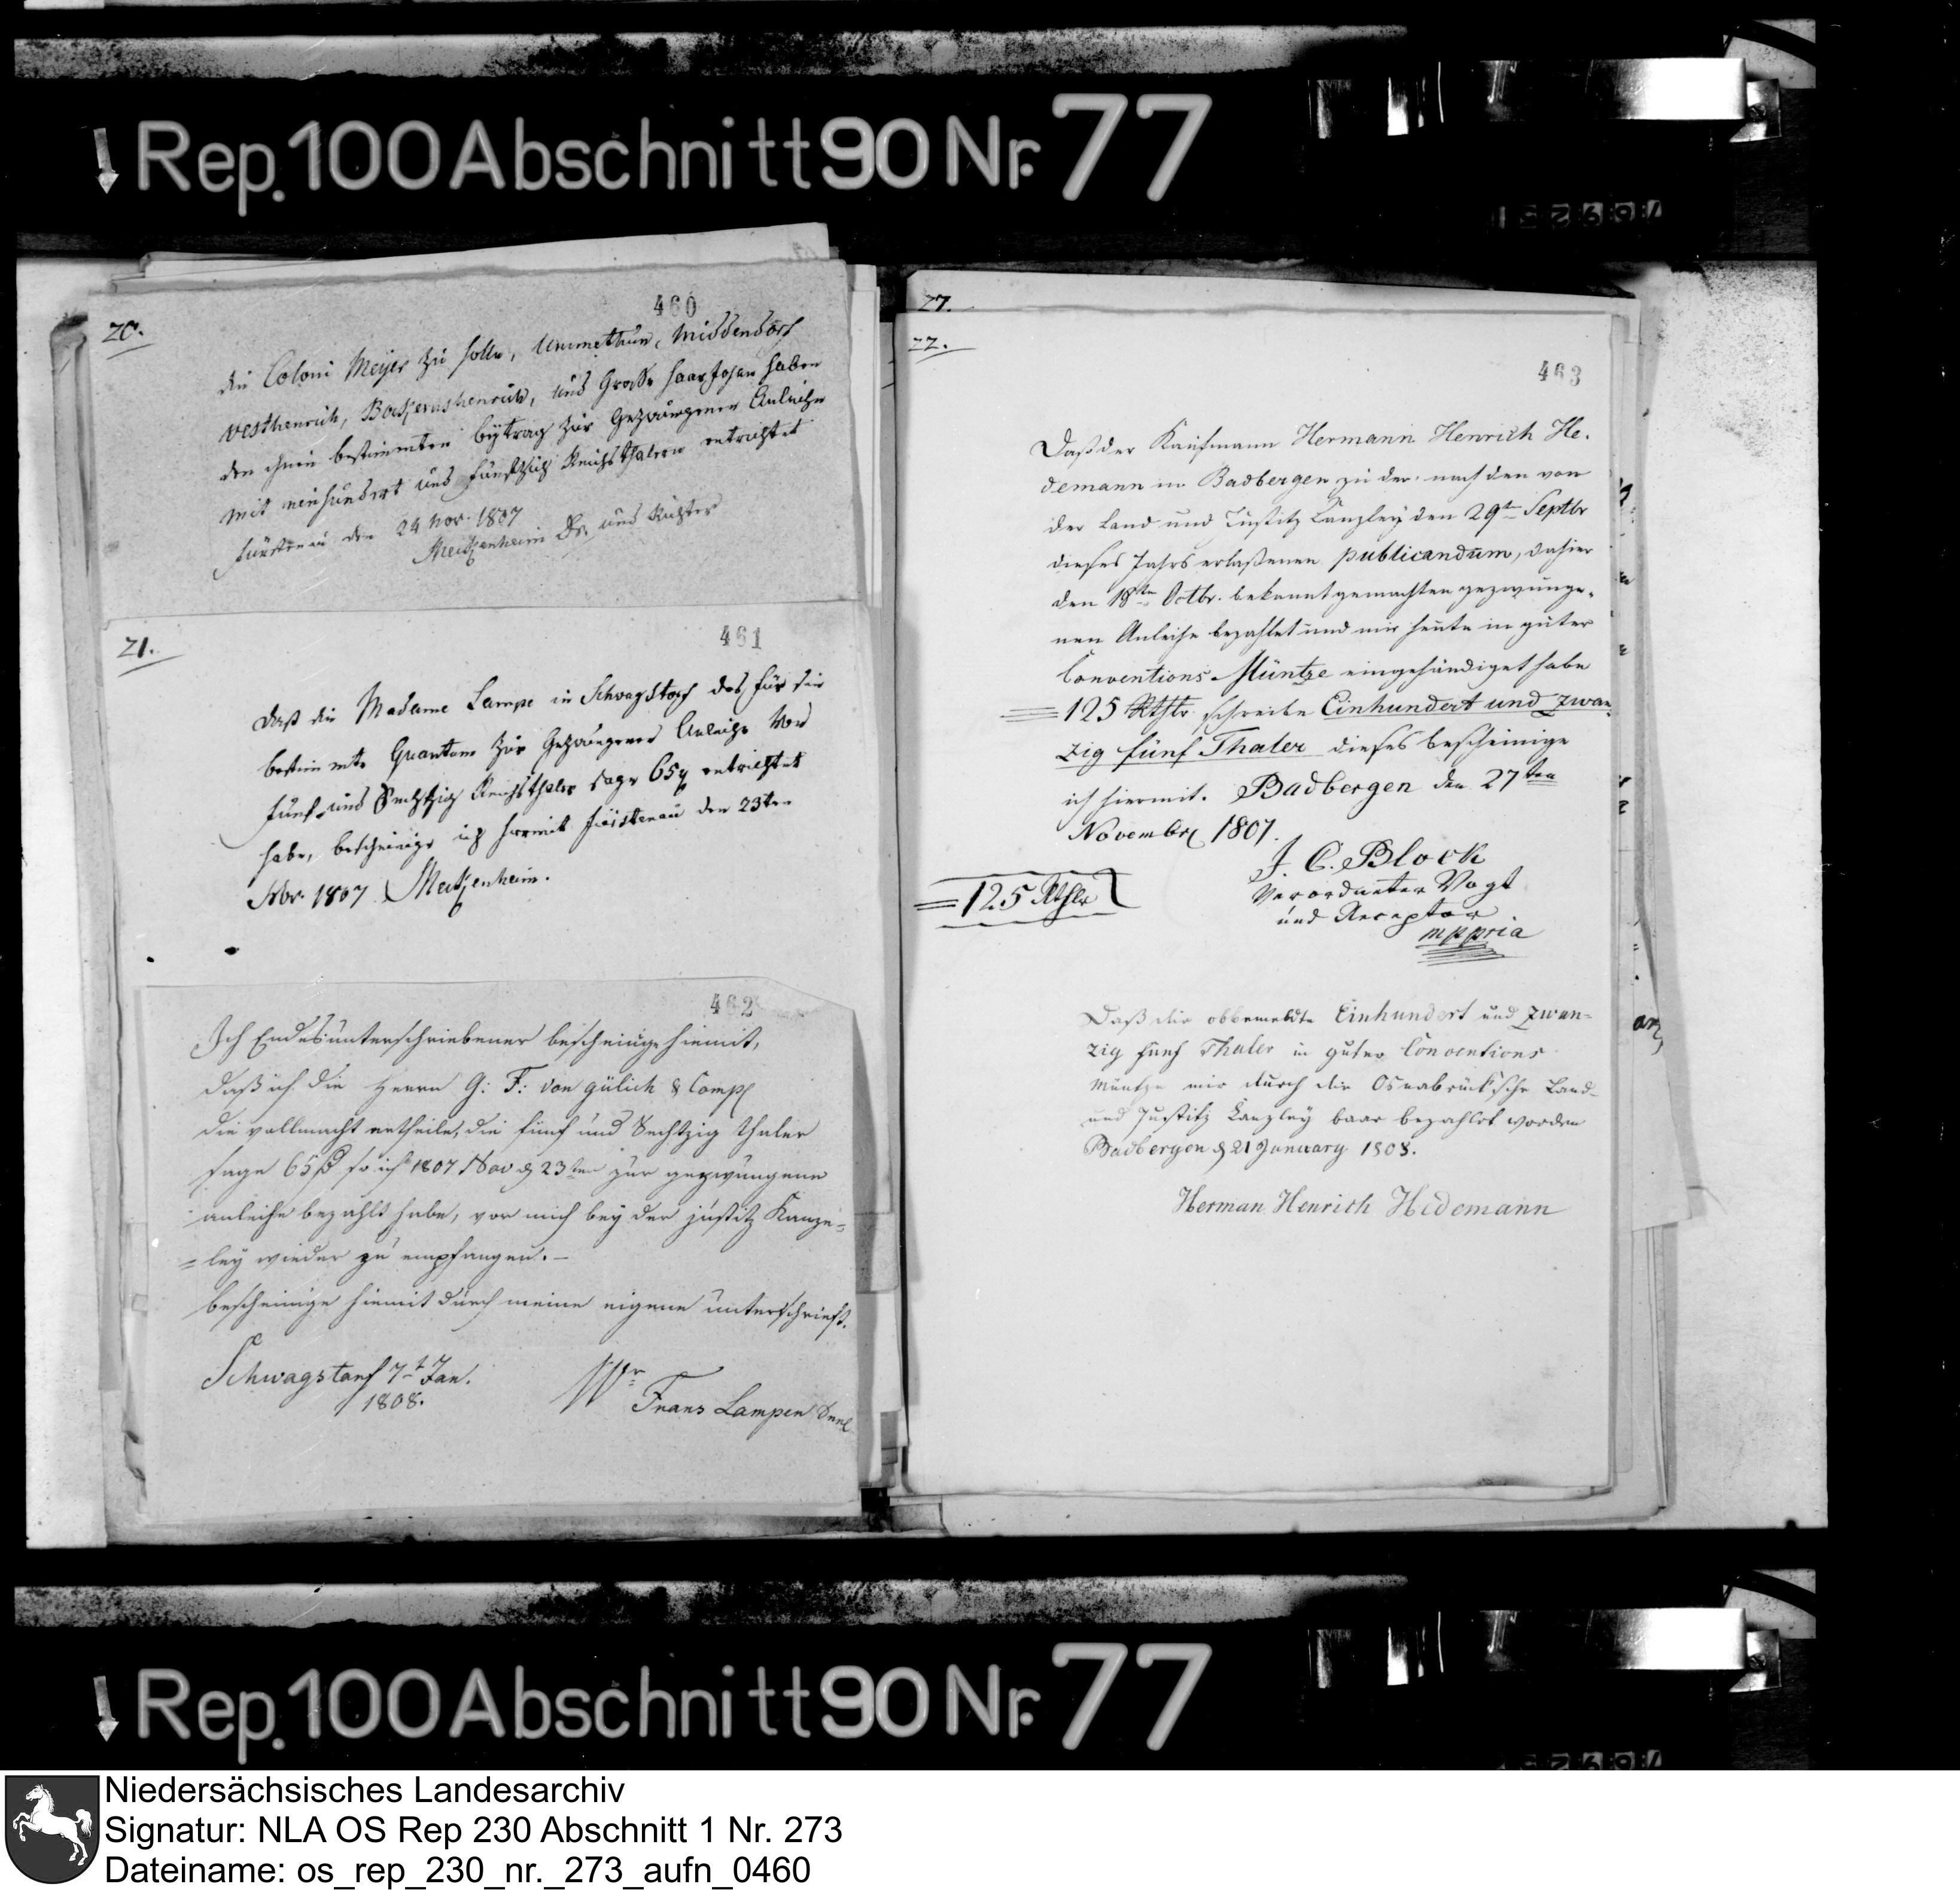 Rep. 100 Abschnitt 90 Nr. 77
460
20.
die Coloni Meyer zu Holle, Ummethun, Middendorf
Vesthenrich, und Große Haarjohan haben
den ihnen bestimmten Beytrag zur Gezwungenen Anleihe
mit neinhundert und fünftzig Reichsthalern entrichtet
Fürstenau den 24 Nov. 1807
Dr. und Richter
461
21.
Daß die Madame Lampe in Schwagstorf das für sie
bestimmte Quantum zur Gezwungenen Anleihe von
fünf und Sechtzig Reichsthaler sage 65 entrichtet
habe, bescheinige ich hiermit Fürstenau den 23ten
Nov. 1807
462
Ich Endesunterschriebener bescheinige hiemit,
daß ich die Herrn G: F: von gülich & Comp
die vollmacht ertheile, die fünf und Sechtzig thaler
sage 65 so ich 1807 Nov d 23ten zur gezwungene
anleihe bezahlt habe, vor mich bey der justitz Kanze-
=ley wieder zu empfangen. –
bescheinige hiemit durch meine eigene unterschrieft.
Schwagstorf 7t Jan.
1808.
Frans Lampen
27.
22.
463
Daß der Kaufmann Hermann Henrich He-
demann in Badbergen zu der nach den von
der Land und Justitz Canzley den 29ten Septbr
dieses Jahrs erlaßenen publicandum, dahier
den 18ten Octbr. bekannt gemachten gezwunge-
nen Anleihe bezahlet und mir heute in guter
Conventions Müntze eingehändiget habe
125 Rthlr schreibe Einhundert und zwan-
zig fünf Thaler dieses bescheinige
ich hiermit. Badbergen den 27ten
November 1807.
J. C. Block
Verordneter Vogt
und Receptor
mppria
125 Rthlr
Daß die obbemeldte Einhundert und zwan-
zig fünf Thaler in guter Conventions
Müntze mir durch die Osnabrück'sche Land-
und Justitz Canzley baar bezahlet worden
Badbergen d 21 January 1808.
Herman Henrich Hedemann
Rep. 100 Abschnitt 90 Nr. 77
Niedersächsisches Landesarchiv
Signatur: NLA OS Rep 230 Abschnitt 1 Nr. 273
Dateiname: os_rep_230_nr._273_aufn_0460